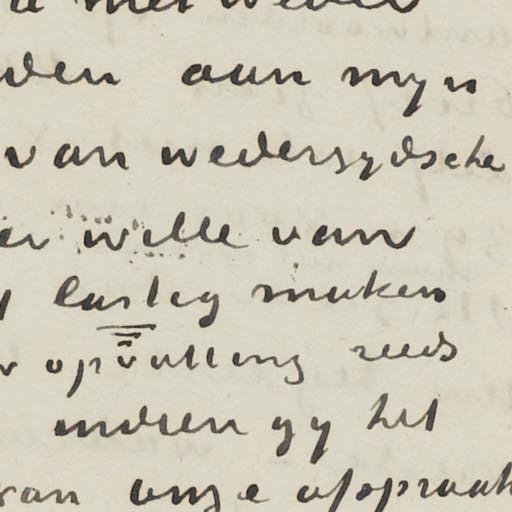 met wever
den aan myn
van wederzydsche
er wille van
lastig maken
opvatting reeds
indien gy het
van onze afspraak